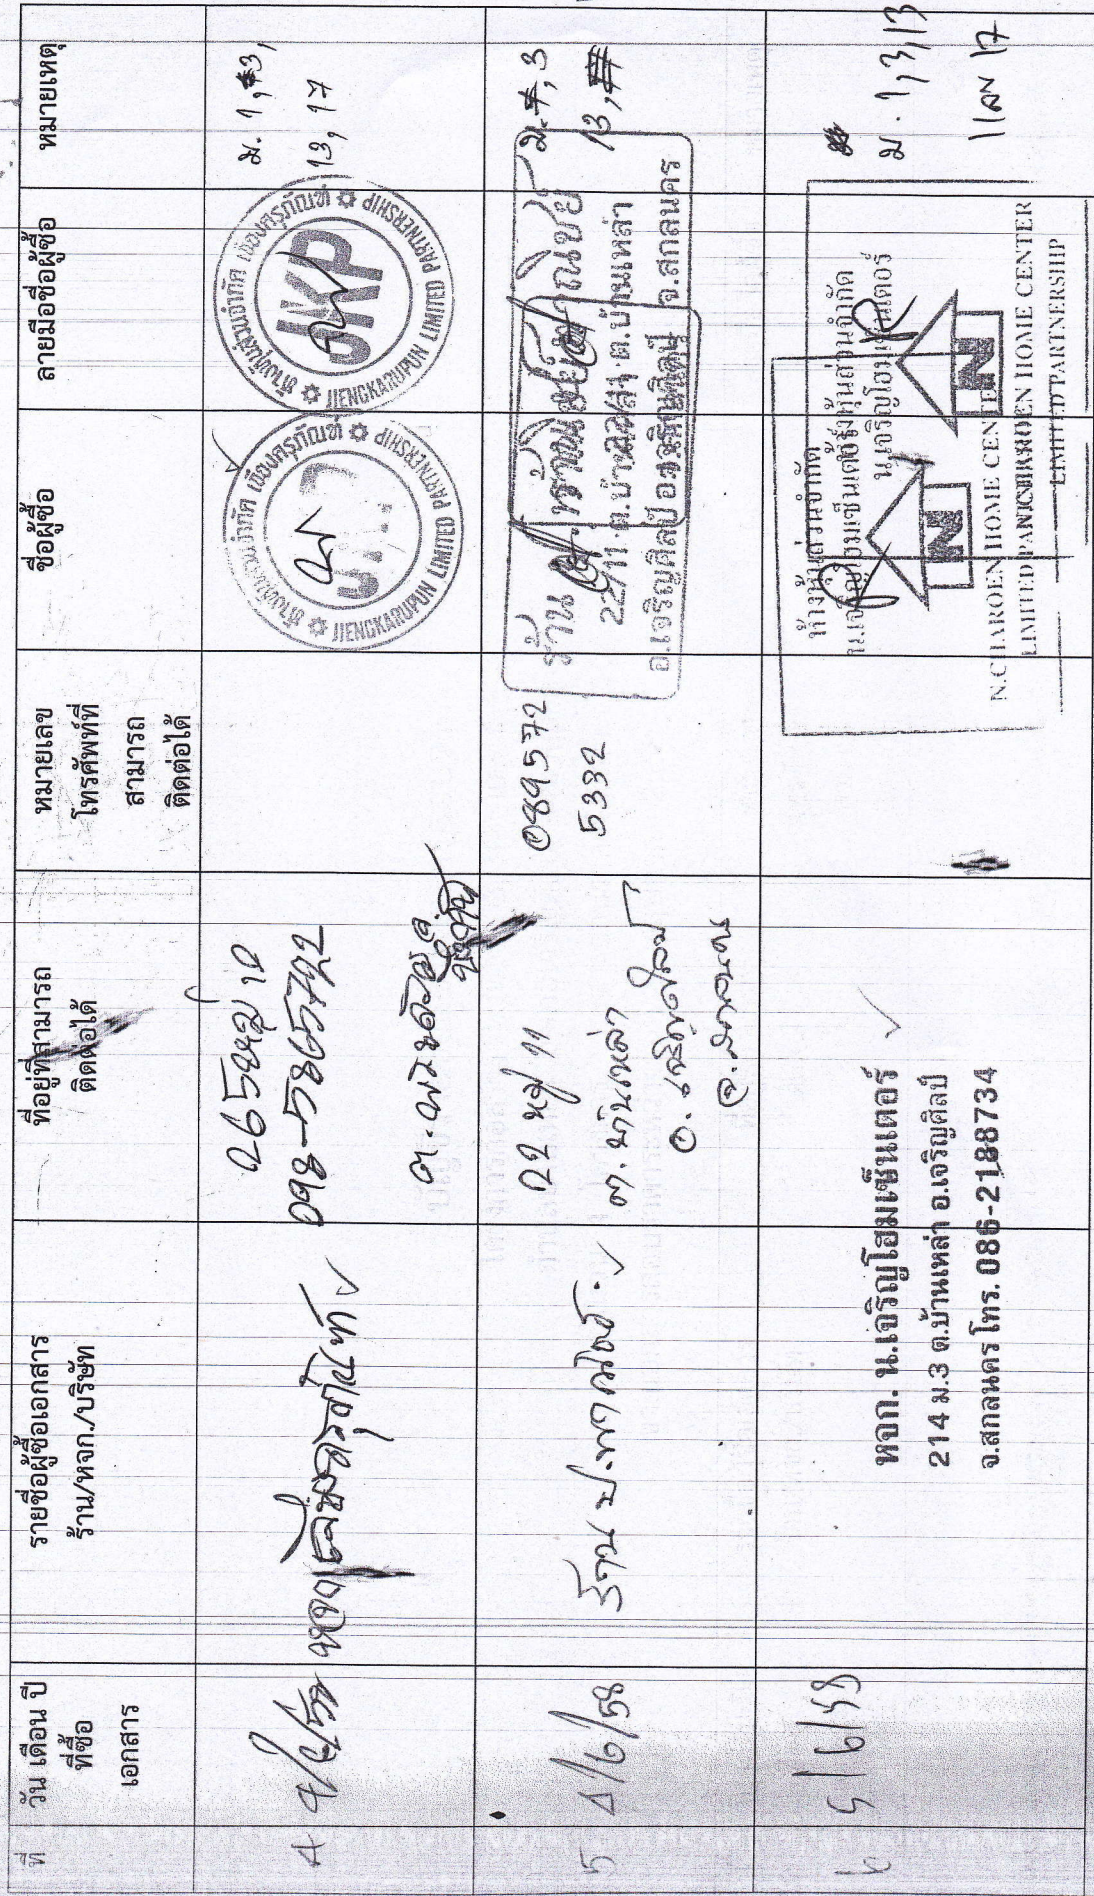 ที่
วัน เดือน ปี
ที่ซื้อ
เอกสาร
รายชื่อผู้ซื้อเอกสาร
ร้าน/หจก./บริษัท
ที่อยู่ที่สามารถ
ติดต่อได้
หมายเลข
โทรศัพท์ที่
สามารถ
ติดต่อได้
ชื่อผู้ซื้อ
ลายมือชื่อผู้ซื้อ
หมายเหตุ
4
4/6/58
265 หมู่ 10
098-5865792
ห้างหุ้นส่วนจำกัด เจียงครุภัณฑ์
JIENGKARUPUN LIMITED PARTNERSHIP
ห้างหุ้นส่วนจำกัด เจียงครุภัณฑ์
JKP
JIENGKARUPUN LIMITED PARTNERSHIP
ม. 1, 3,
13, 17
5
4/6/58
ร้าน ป.พาณิชย์
22 หมู่ 11
ต. บ้านเหล่า
อ. เจริญศิลป์
จ. สกลนคร
089572
5332
ร้าน
22/11 ต.บ้านเหล่า
อ.เจริญศิลป์
ต.บ้านเหล่า
จ.สกลนคร
ม. 3
13,
6
5/6/58
หจก. น.เจริญโฮมเซ็นเตอร์
214 ม.3 ต.บ้านเหล่า อ.เจริญศิลป์
จ.สกลนคร โทร. 086-2188734
ห้างหุ้นส่วนจำกัด
น.เจริญโฮมเซ็นเตอร์
N
N.CHAROEN HOME CENTER
LIMITED PARTNERSHIP
ห้างหุ้นส่วนจำกัด
น.เจริญโฮมเซ็นเตอร์
N
N.CHAROEN HOME CENTER
LIMITED PARTNERSHIP
ม. 1, 3, 13
และ 17